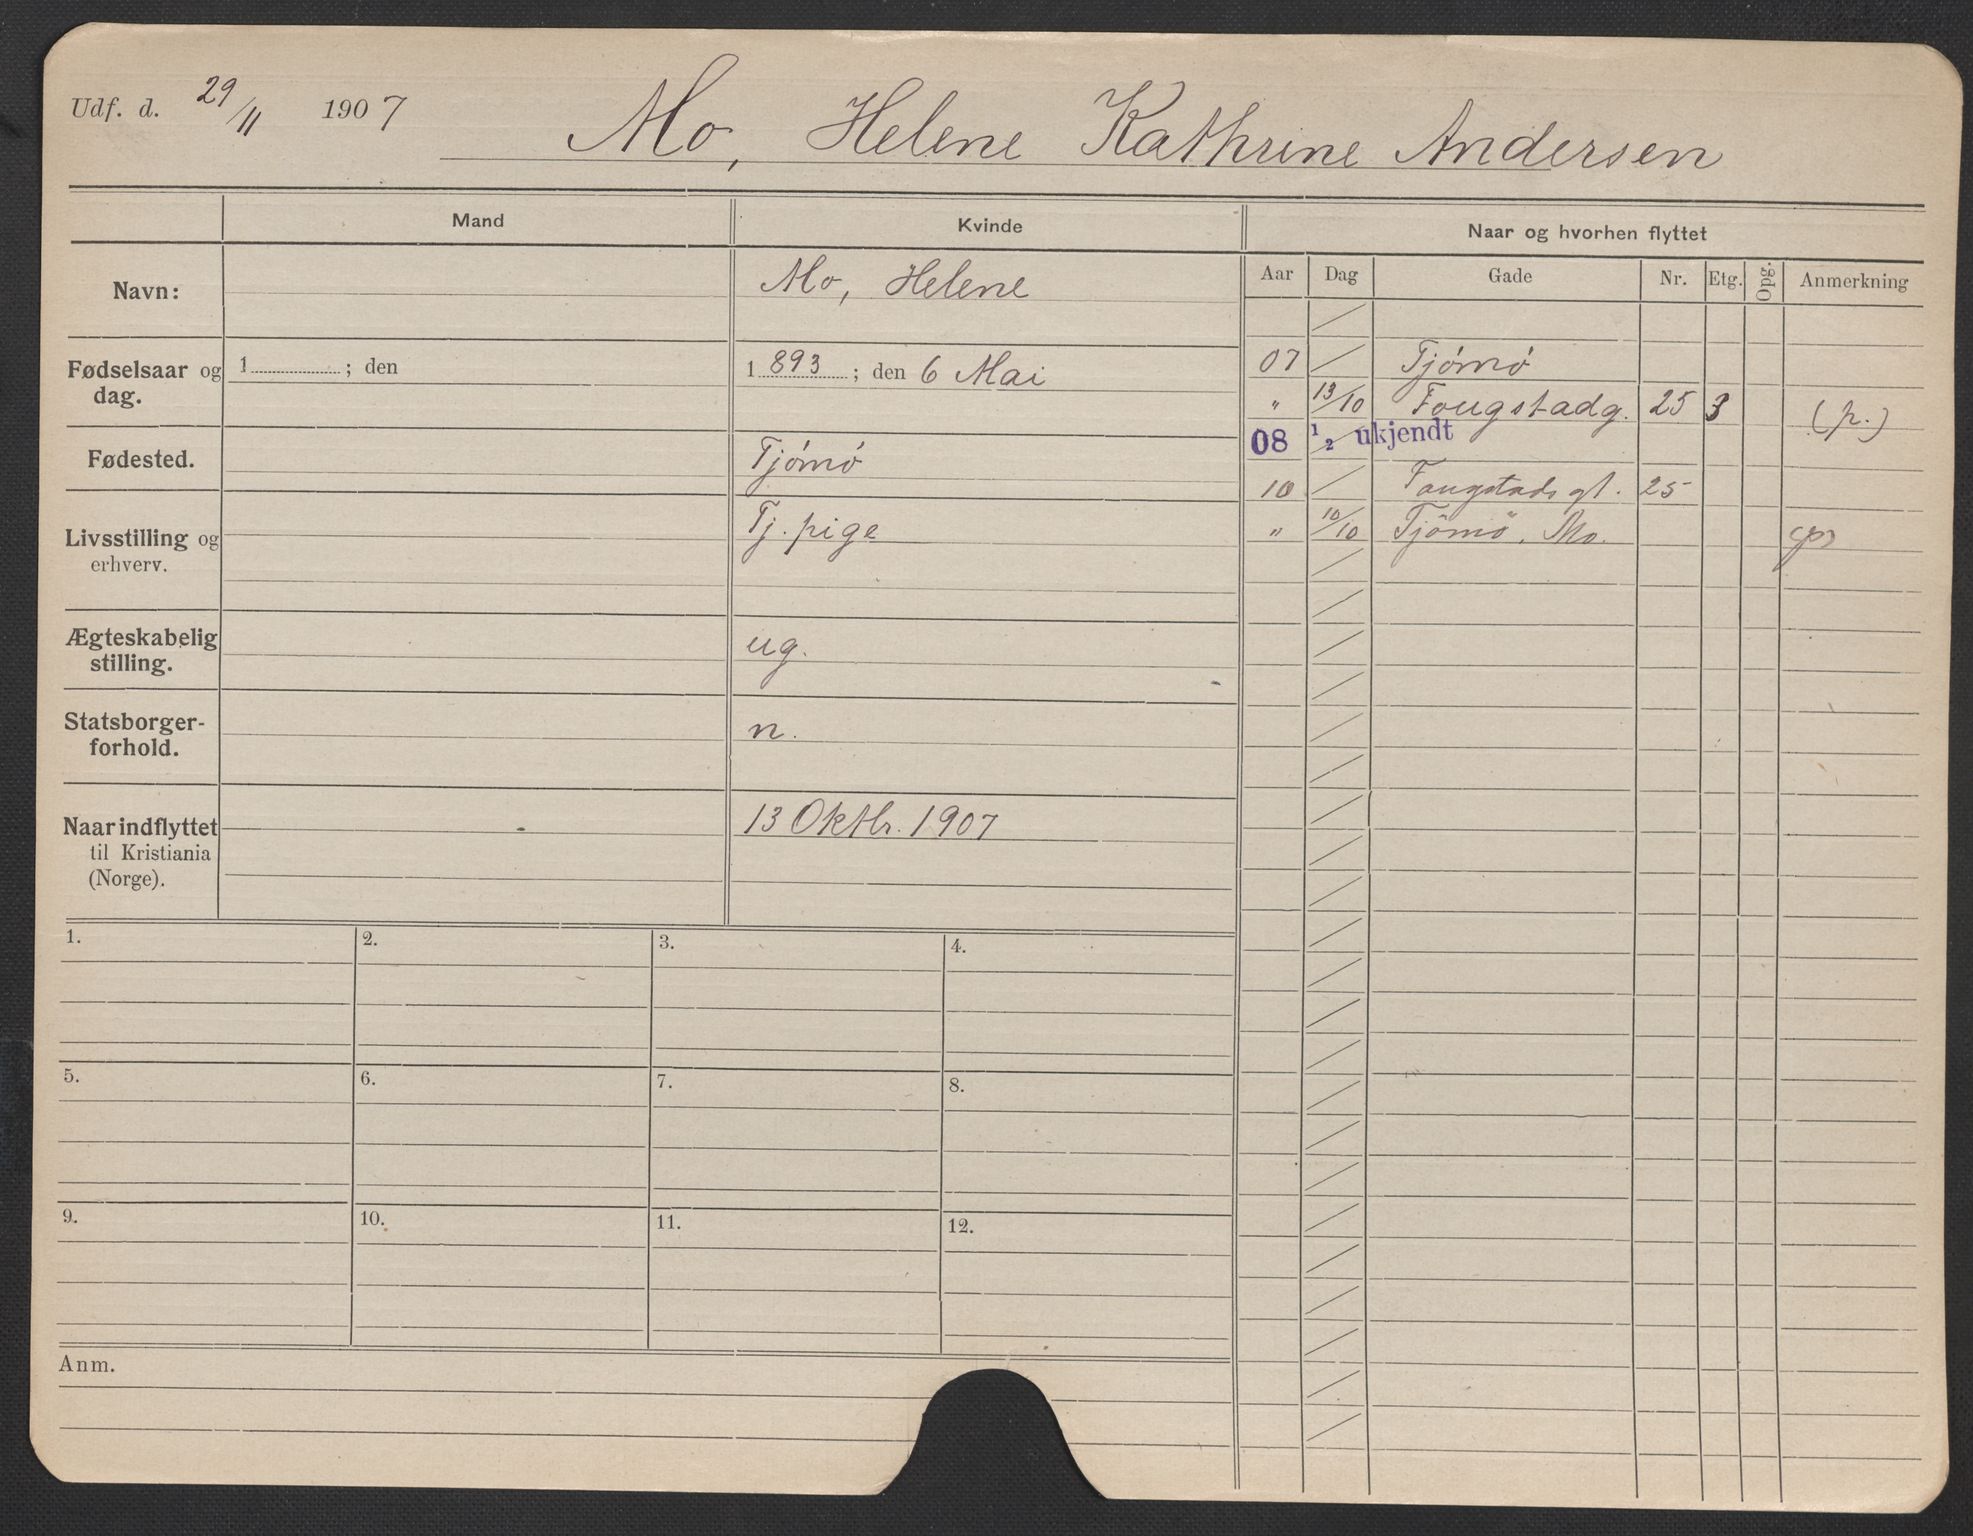 Udf. d. 29/11 1907 Mo, Helene Kathrine Andersen
Mand Kvinde Naar og hvorhen flyttet
Aar Dag Gade Nr. Etg. Opg. Anmerkning
Navn: Mo, Helene
Fødselsaar og dag. 1 ; den 1893 ; den 6 Mai
Fødested. Tjömö
Livsstilling og erhverv. Tj. pige
Ægteskabelig stilling. ug.
Statsborger-
forhold. n.
Naar indflyttet
til Kristiania
(Norge). 13 Oktbr. 1907
07 Tjömö
" 13/10 Fougstadg. 25 3 (p.)
08 1/2 ukjendt
10 Fougstads gt. 25
" 10/10 Tjömö, Mo. (p)
1. 2. 3. 4.
5. 6. 7. 8.
9. 10. 11. 12.
Anm.